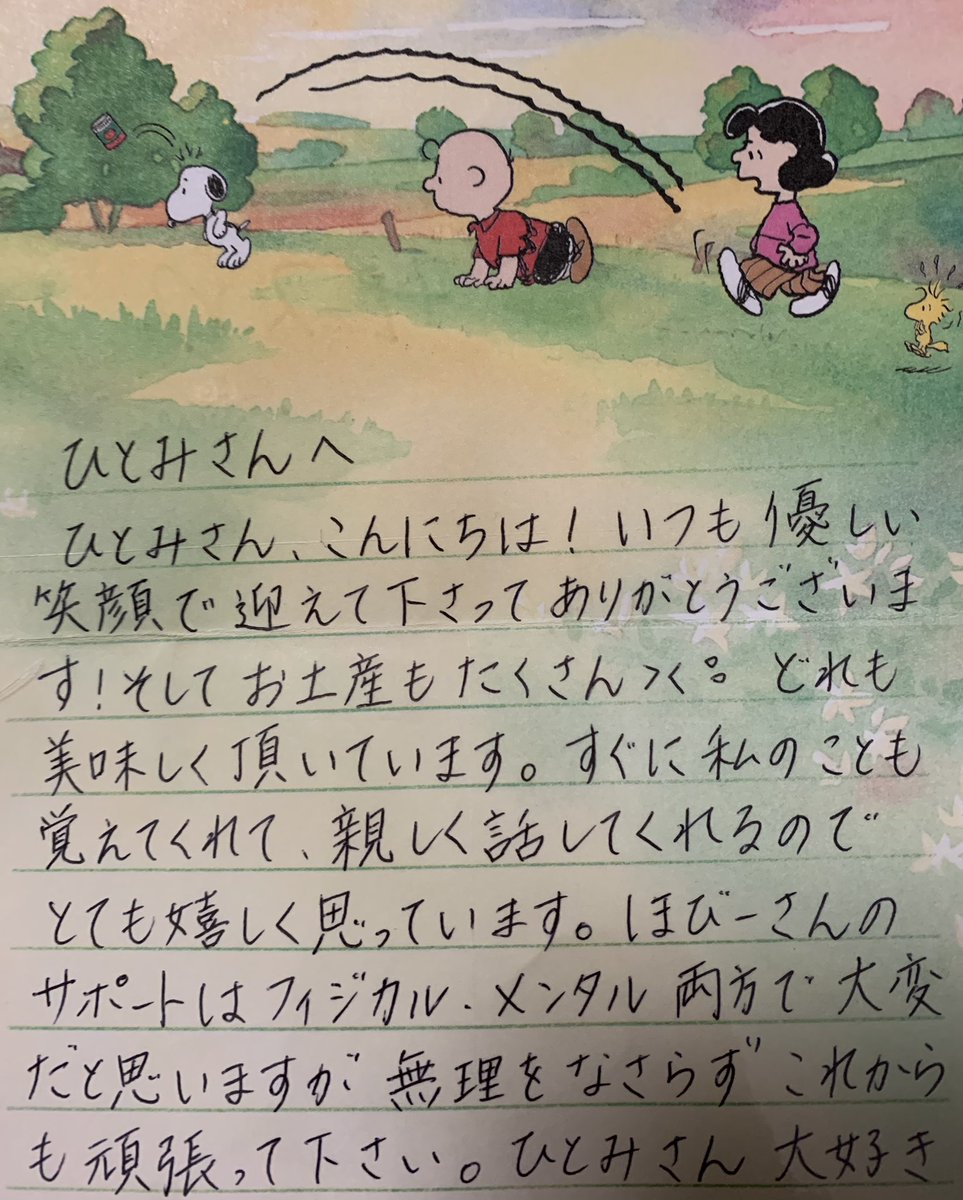 ひとみさんへ
ひとみさん、こんにちは！いつも優しい
笑顔で迎えて下さってありがとうございま
す！そしてお土産もたくさん>く。どれも
美味しく頂いています。すぐに私のことも
覚えてくれて、親しく話してくれるので
とても嬉しく思っています。ほびーさんの
サポートはフィジカル・メンタル両方で大変
だと思いますが無理をなさらずこれから
も頑張って下さい。ひとみさん大好き